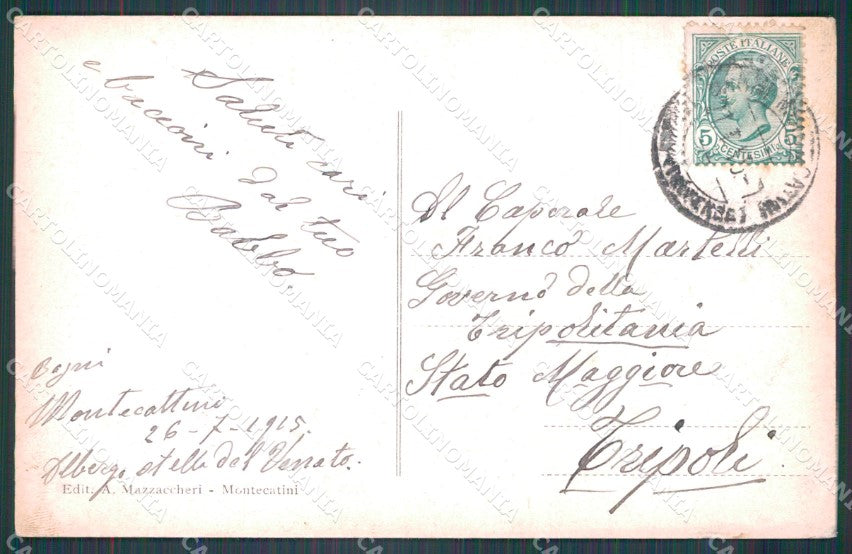 Saluti cari
e baccioni dal tuo
Babbo.
Bagni
Montecattini
26-7-1915.
Albergo stella del Venato.
Edit. A. Mazzaccheri - Montecatini
POSTE ITALIANE
5 5
CENTESIMI
Al Caporale
Franco Martelli
Governo della
Tripolitania
Stato Maggiore
Tripoli
CARTOLINOMANIA